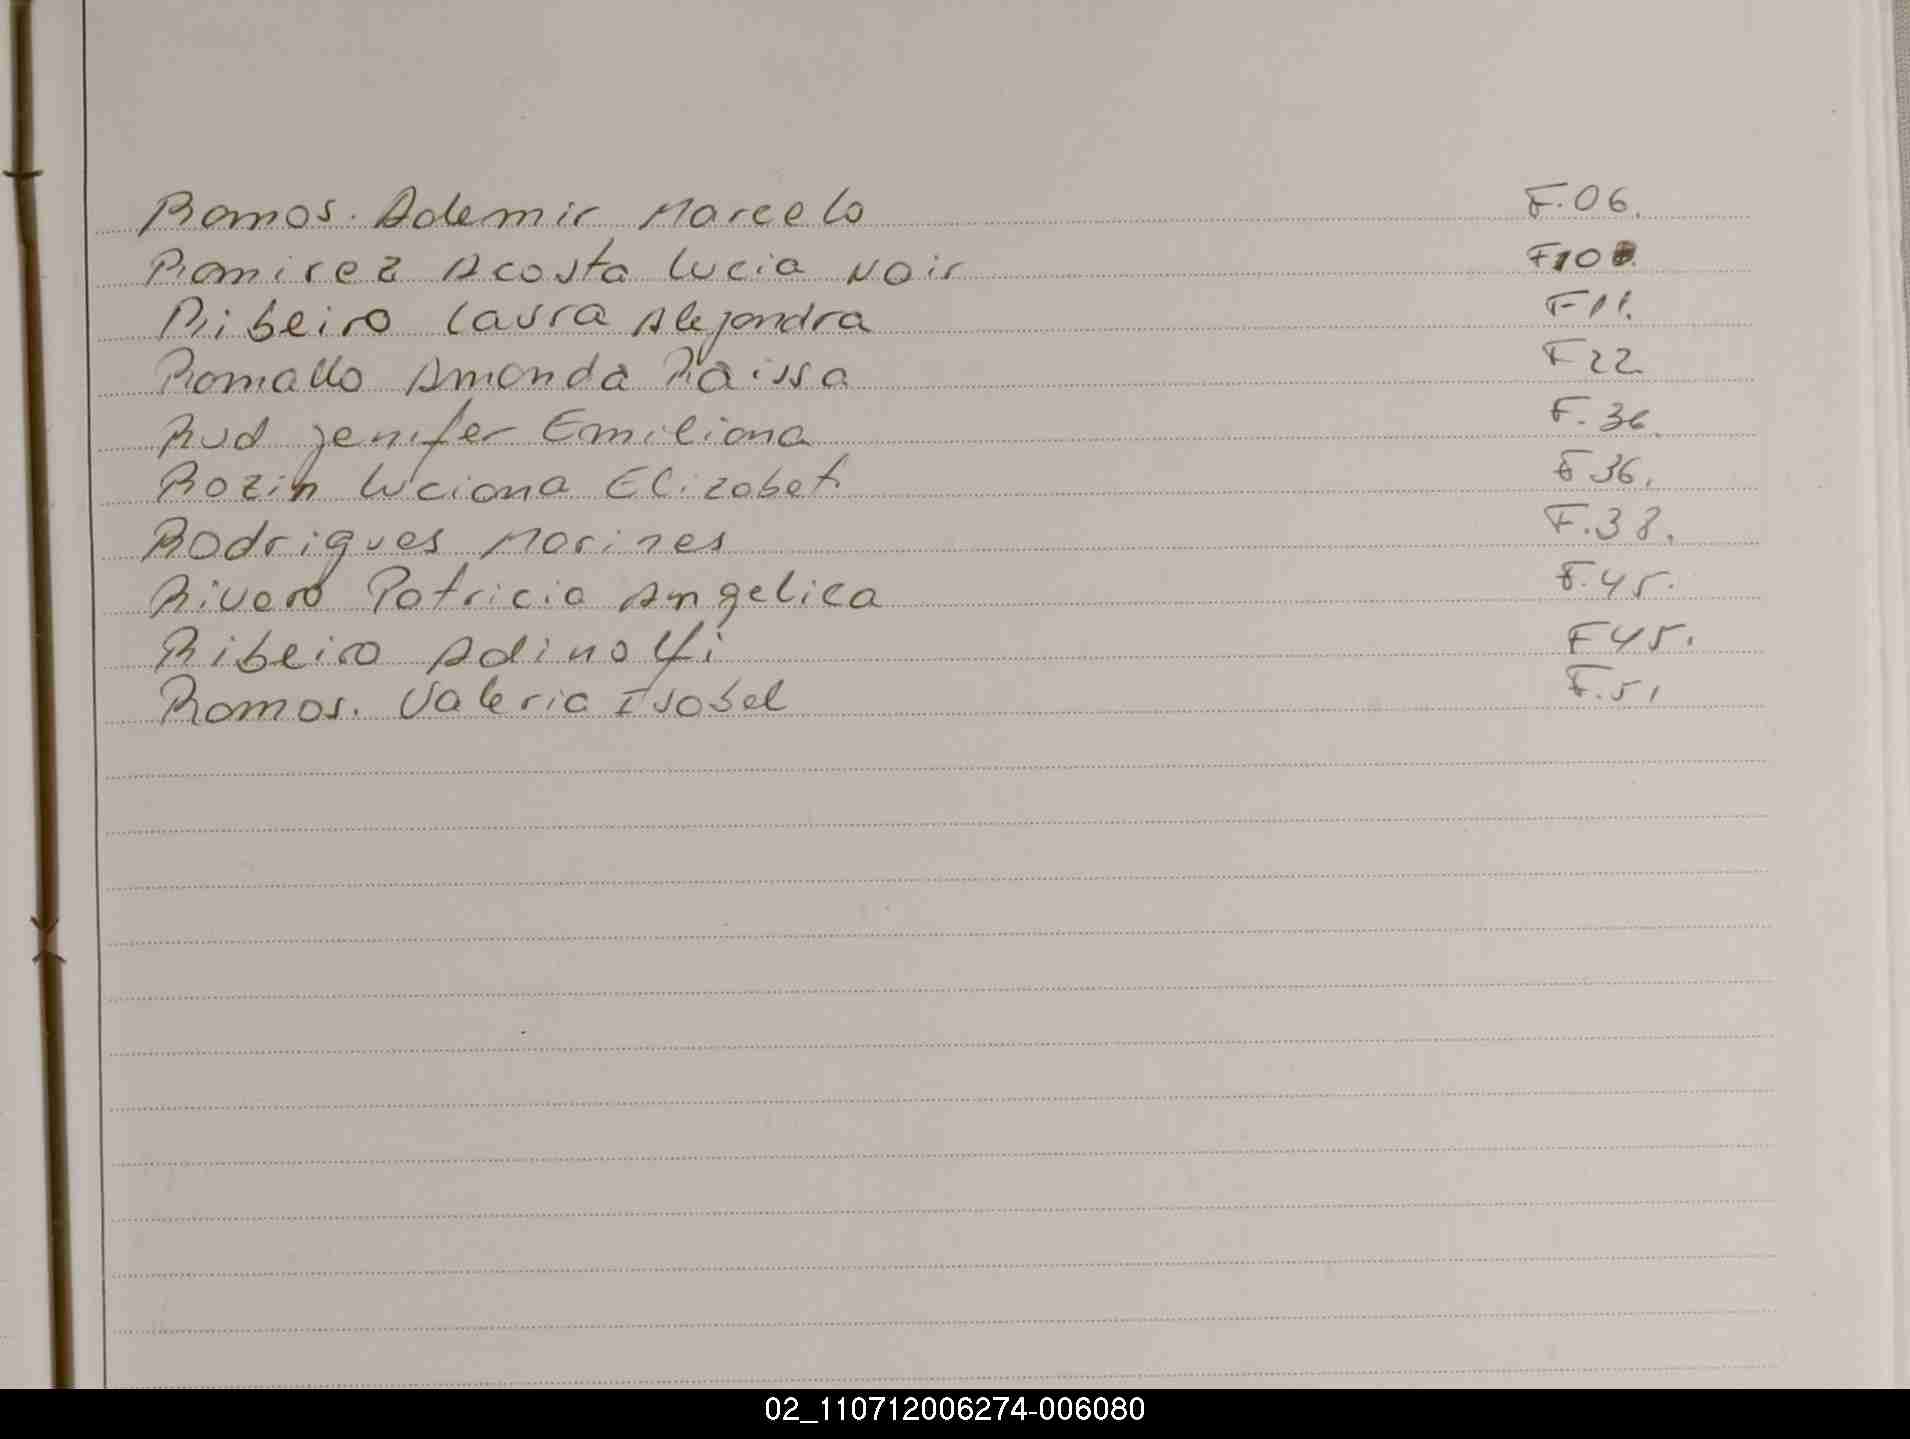 Ramos. Ademir Marcelo F.06.
Ramirez Acosta Lucia Noir F10
Ribeiro Laura Alejandra F11.
Romallo Amanda Raissa F22
Rud Jenifer Emiliana F.36.
Rozin Luciana Elizabet. F36.
Rodrigues Marines F.38.
Rivero Patricia Angelica F.45.
Ribeiro Adinolfi F45.
Ramos. Valeria Isabel F.51
02_110712006274-006080